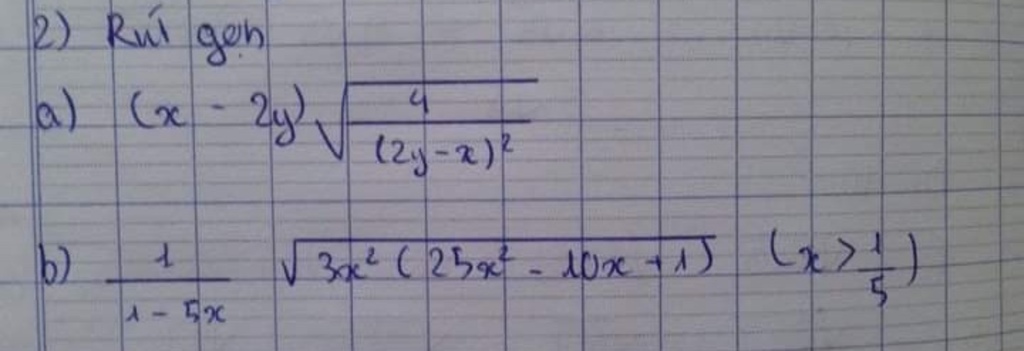 2) Rút gọn
a) (x - 2y) √(4/(2y-x)²)
b) 1/(1-5x) √(3x²(25x² - 10x + 1)) (x > 1/5)